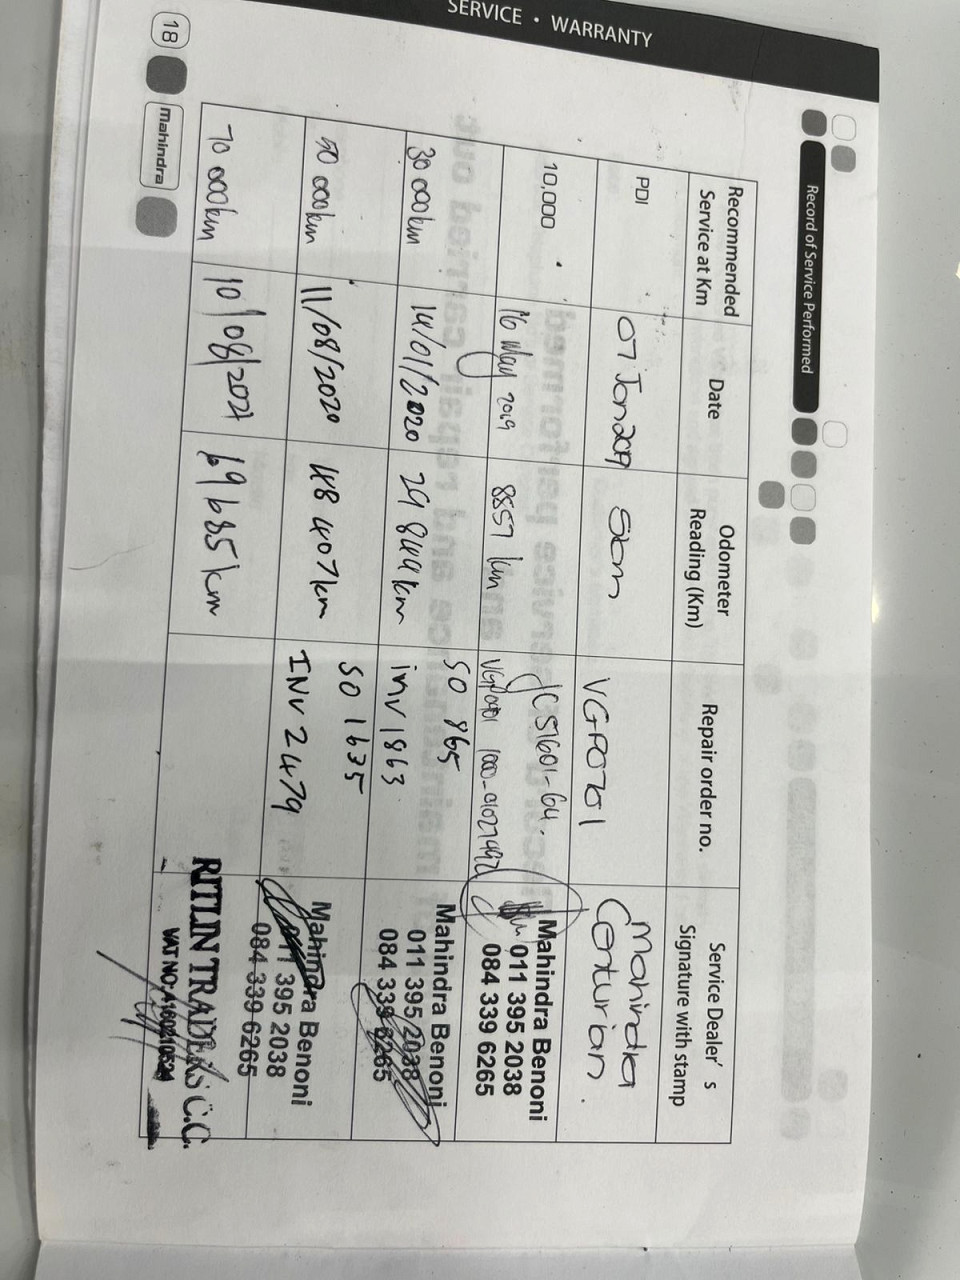 SERVICE • WARRANTY
Record of Service Performed
Recommended
Service at Km
Date
Odometer
Reading (Km)
Repair order no.
Service Dealer's
Signature with stamp
PDI
07 Jan 2019
5km
VGF0701
Mahindra
Centurian
10,000
16 May 2019
8857 km
JC51601-64.
Mahindra Benoni
011 395 2038
084 339 6265
30 000km
14/01/2020
29 844km
SO 865
inv 1863
Mahindra Benoni
011 395 2038
084 339 6265
50 000km
11/08/2020
48 407km
SO 1635
INV 2479
Mahindra Benoni
011 395 2038
084 339 6265
70 000km
10/08/2021
69685km
RITLIN TRADERS C.C.
VAT NO:
18
Mahindra